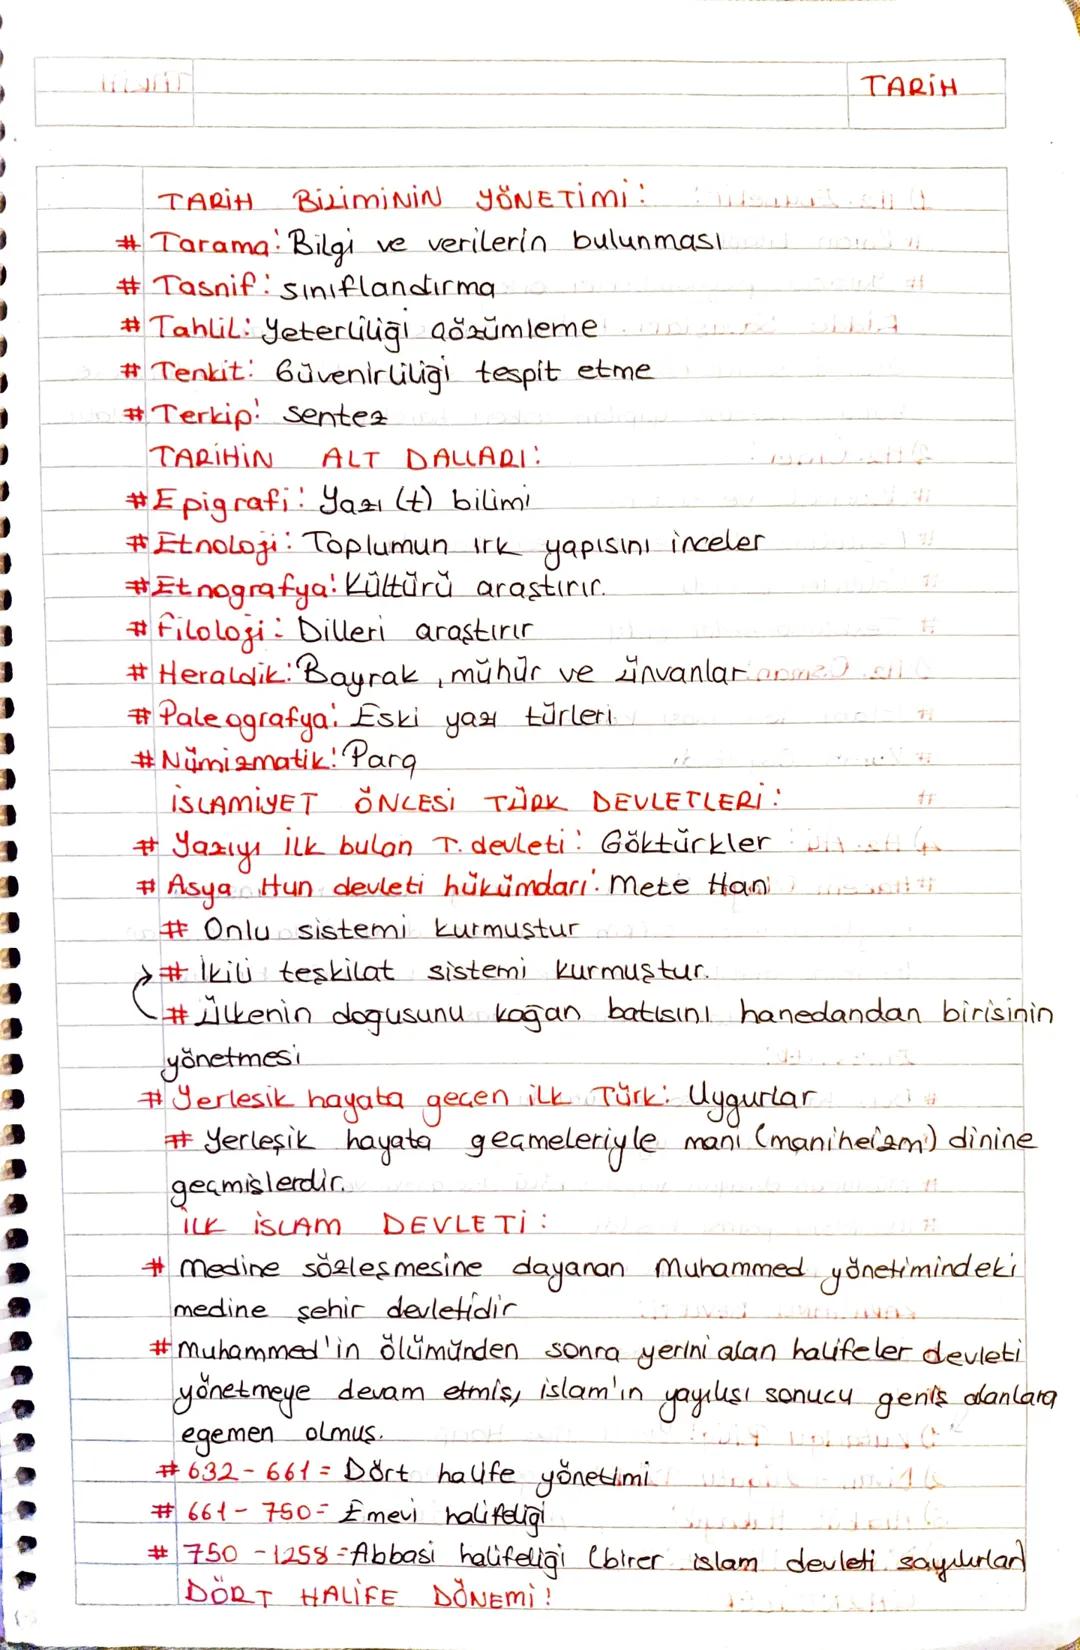 TARİH
TARİH BİLİMİNİN YÖNETİMİ:
# Tarama: Bilgi ve verilerin bulunması
# Tasnif: sınıflandırma
# Tahlil: Yeterliliği çözümleme
# Tenkit: Güvenirliliği tespit etme
# Terkip: Sentez
TARİHİN ALT DALLARI:
# Epigrafi: Yazı (t) bilimi
# Etnoloji: Toplumun ırk yapısını inceler
# Etnografya: Kültürü araştırır.
# filoloji: Dilleri araştırır
# Heraldik: Bayrak, mühür ve ünvanlar
# Paleografya: Eski yazı türleri
# Nümizmatik: Para
İSLAMİYET ÖNCESİ TÜRK DEVLETLERİ:
# Yazıyı ilk bulan T. devleti: Göktürkler
# Asya Hun devleti hükümdarı: Mete Han
# Onlu sistemi kurmuştur
# İkili teşkilat sistemi kurmuştur.
# Ülkenin dogusunu kağan batısını hanedandan birisinin
yönetmesi
# Yerlesik hayata geçen ilk Türk: Uygurlar
# Yerleşik hayata geçmeleriyle mani (maniheizm) dinine
geçmişlerdir.
İLK İSLAM DEVLETİ:
# medine sözleşmesine dayanan Muhammed yönetimindeki
medine şehir devletidir
# muhammed'in ölümünden sonra yerini alan halifeler devleti
yönetmeye devam etmiş, islam'ın yayılışı sonucu geniş alanlara
egemen olmuş.
# 632-661 = Dört halife yönetimi
# 661-750 = Emevi halifeliği
# 750-1258 = Abbasi halifeliği (birer islam devleti sayılırlar)
DÖRT HALİFE DÖNEMİ: